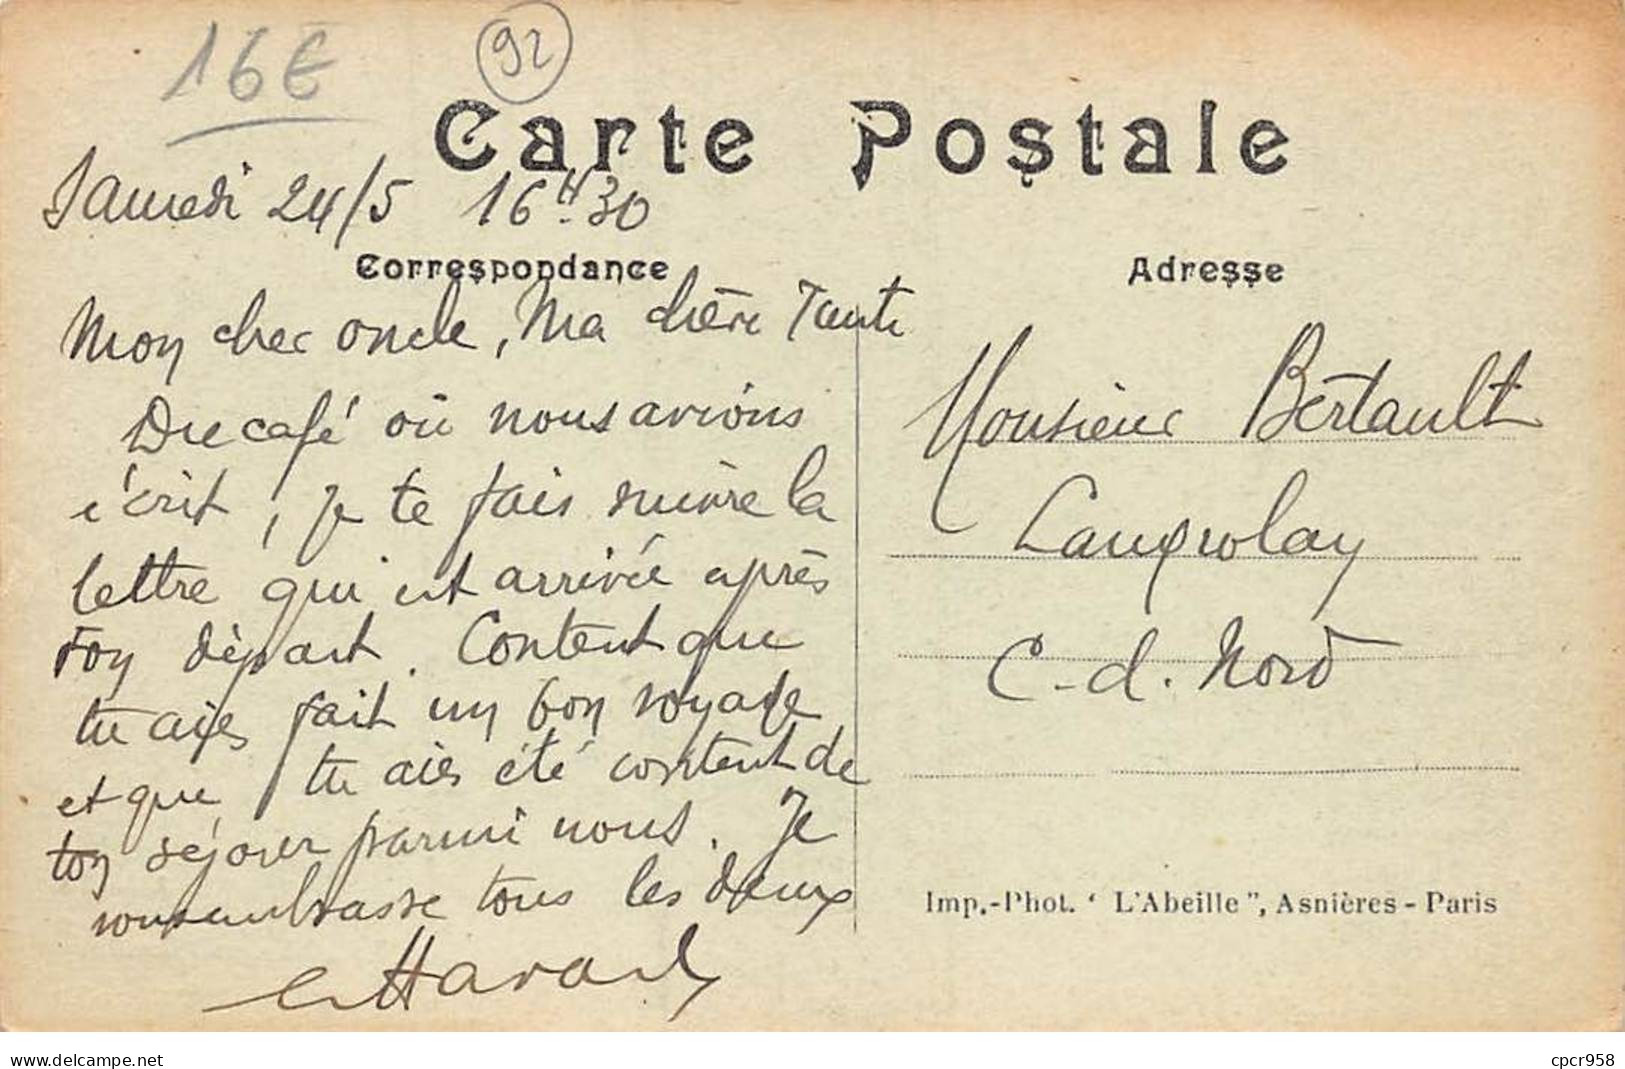 16€
92
Carte Postale
Samedi 24/5 16H30
Correspondance
Adresse
Mon cher oncle, Ma chère Tante
Du café où nous avions
écrit, je te fais suivre la
lettre qui est arrivée après
ton départ. Content que
tu aies fait un bon voyage
et que tu aies été content de
ton séjour parmi nous. Je
vous embrasse tous les deux
Monsieur Bertault
Langrolay
C-d. Nord
Imp.-Phot. "L'Abeille", Asnières - Paris
www.delcampe.net
cpcr958